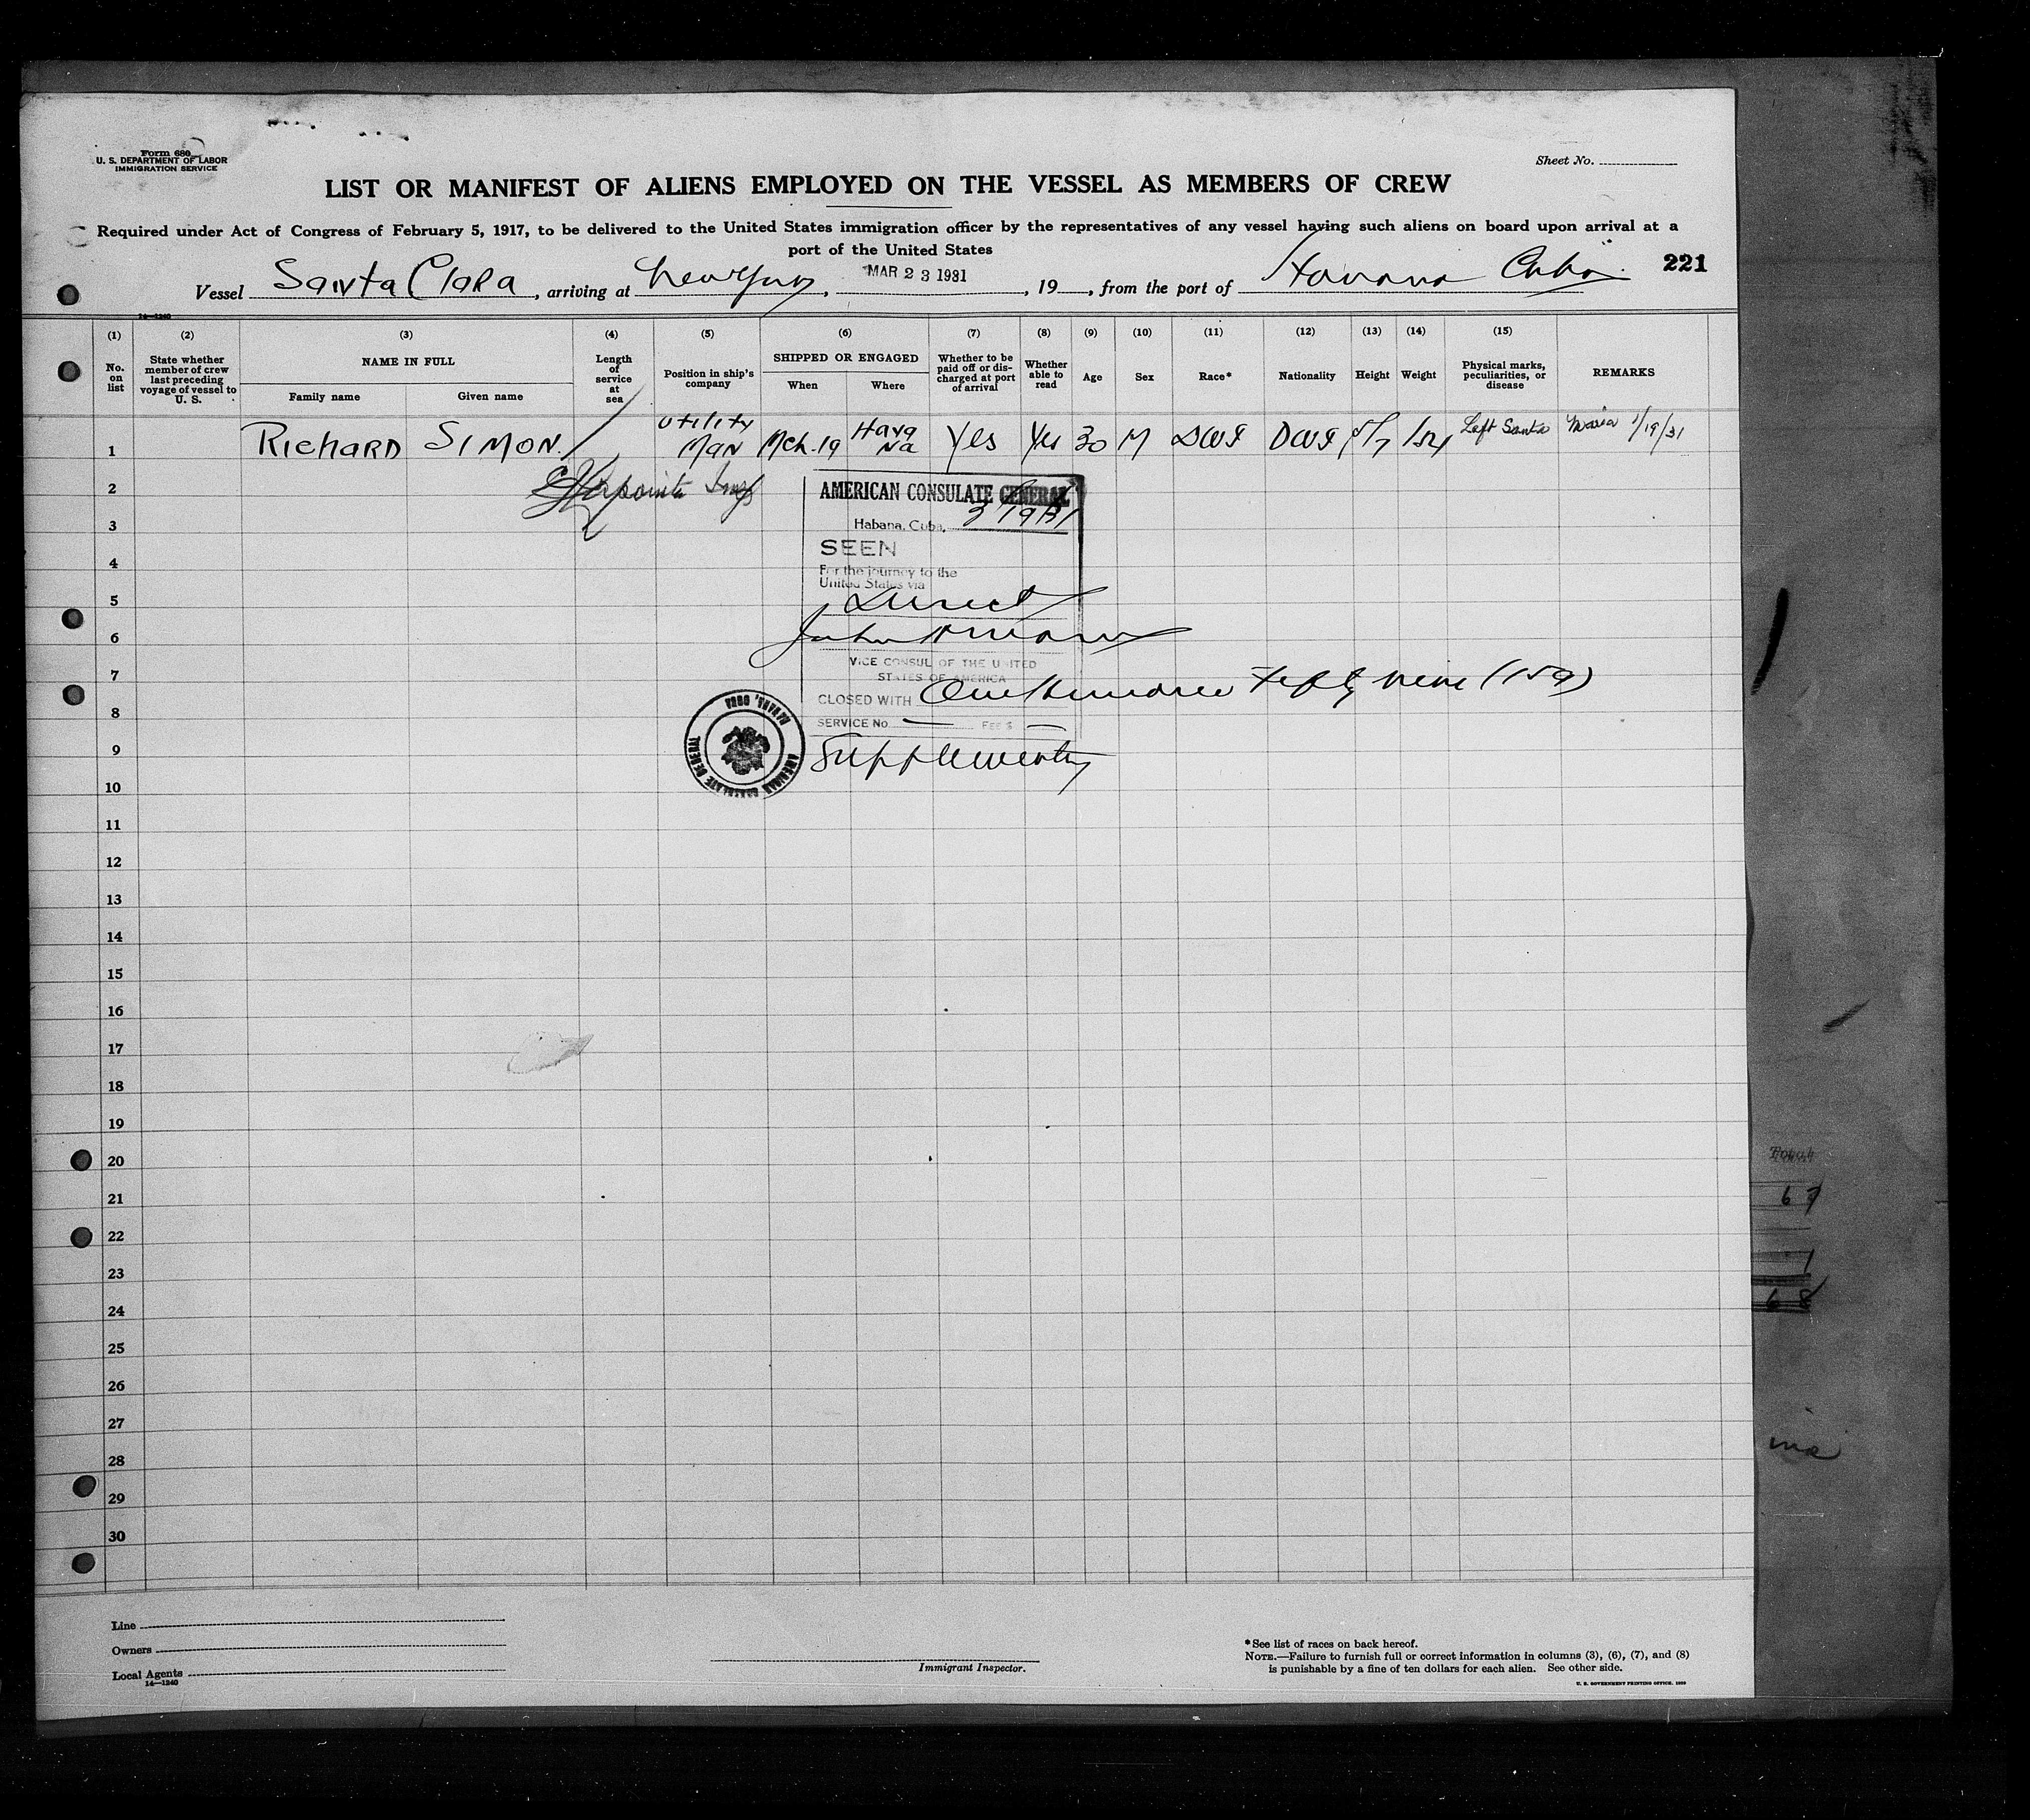 Form 680
U. S. DEPARTMENT OF LABOR
IMMIGRATION SERVICE
Sheet No.
LIST OR MANIFEST OF ALIENS EMPLOYED ON THE VESSEL AS MEMBERS OF CREW
Required under Act of Congress of February 5, 1917, to be delivered to the United States immigration officer by the representatives of any vessel having such aliens on board upon arrival at a
port of the United States
Vessel Santa Clara, arriving at New York, MAR 23 1931, 19 , from the port of Havana Cuba. 221
14—1240
(1) (2) (3) (4) (5) (6) (7) (8) (9) (10) (11) (12) (13) (14) (15)
No. on list
State whether member of crew last preceding voyage of vessel to U. S.
NAME IN FULL
Family name
Given name
Length of service at sea
Position in ship's company
SHIPPED OR ENGAGED
When
Where
Whether to be paid off or discharged at port of arrival
Whether able to read
Age
Sex
Race*
Nationality
Height
Weight
Physical marks, peculiarities, or disease
REMARKS
1 RICHARD SIMON. Utility Man Mch. 19 Havana Yes Yes 30 M DWI DWI 5/7 154 Left Santa Maria 1/19/31
2
3
4
5
6
7
8
9
10
11
12
13
14
15
16
17
18
19
20
21
22
23
24
25
26
27
28
29
30
AMERICAN CONSULATE GENERAL
Habana, Cuba, 3/19/31
SEEN
For the journey to the
United States via
Direct
VICE CONSUL OF THE UNITED
STATES OF AMERICA
CLOSED WITH One Hundred Fifty nine (159)
SERVICE No. — FEE $ —
Supplementary
AMERICAN CONSULATE GENERAL
HABANA, CUBA
Total
67
1
68
Line
Owners
Local Agents
14—1240
Immigrant Inspector.
*See list of races on back hereof.
NOTE.—Failure to furnish full or correct information in columns (3), (6), (7), and (8)
is punishable by a fine of ten dollars for each alien. See other side.